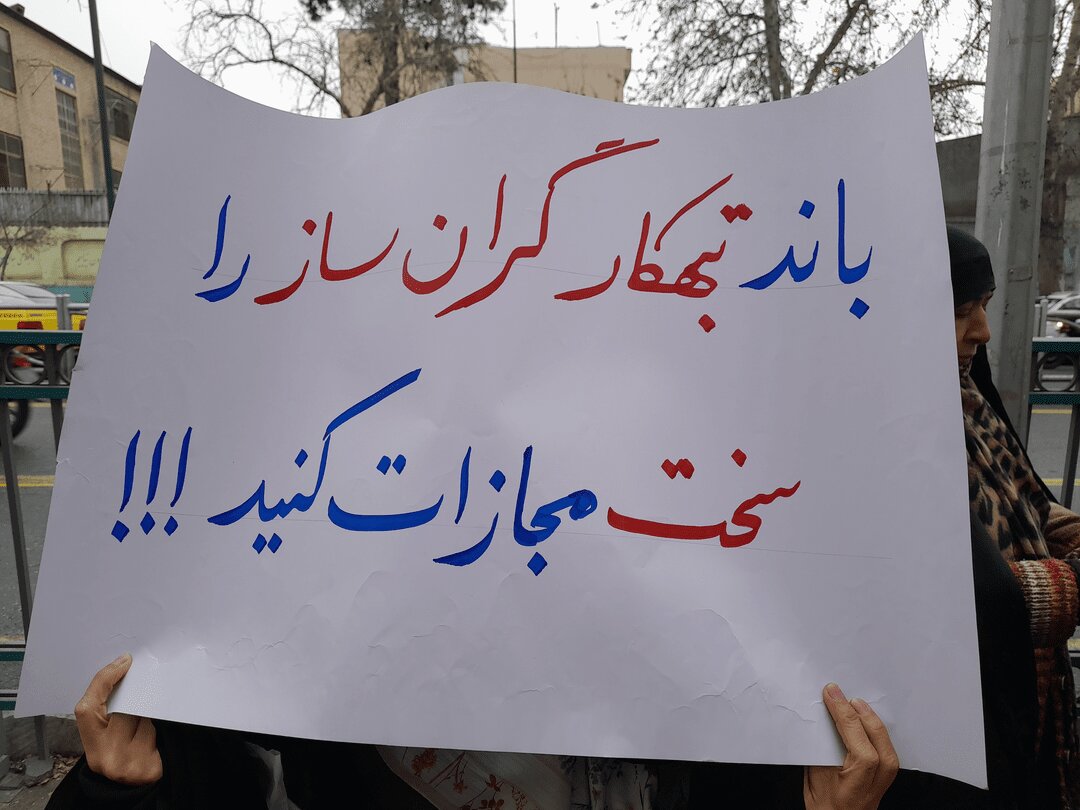 باند تبهکار گران ساز را
سخت مجازات کنید !!!